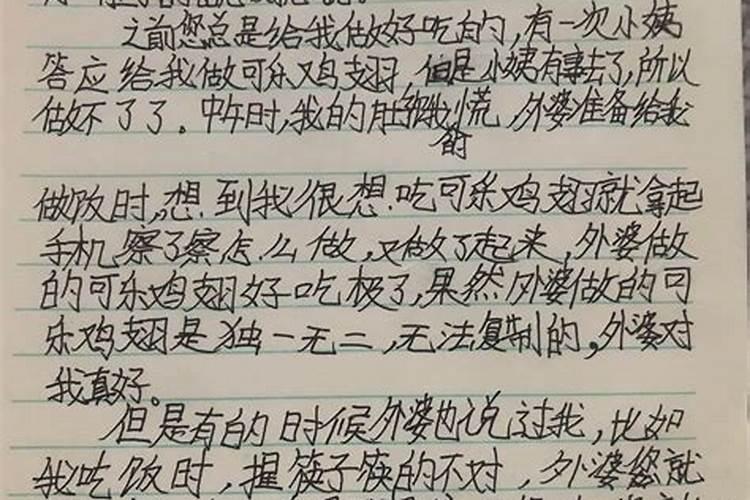 之前您总是给我做好吃的,有一次小姨
答应给我做可乐鸡翅,但是小姨有事去了,所以
做不了了。中午时,我的肚饿我小慌,外婆准备给我
的
做饭时,想到我很想吃可乐鸡翅就拿起
手机察了察怎么做,又做了起来,外婆做
的可乐鸡翅好吃极了,果然外婆做的可
乐鸡翅是独一无二,无法复制的。外婆对
我真好。
但是有的时候外婆也说过我,比如
我吃饭时,握筷子筷的不对,外婆您就